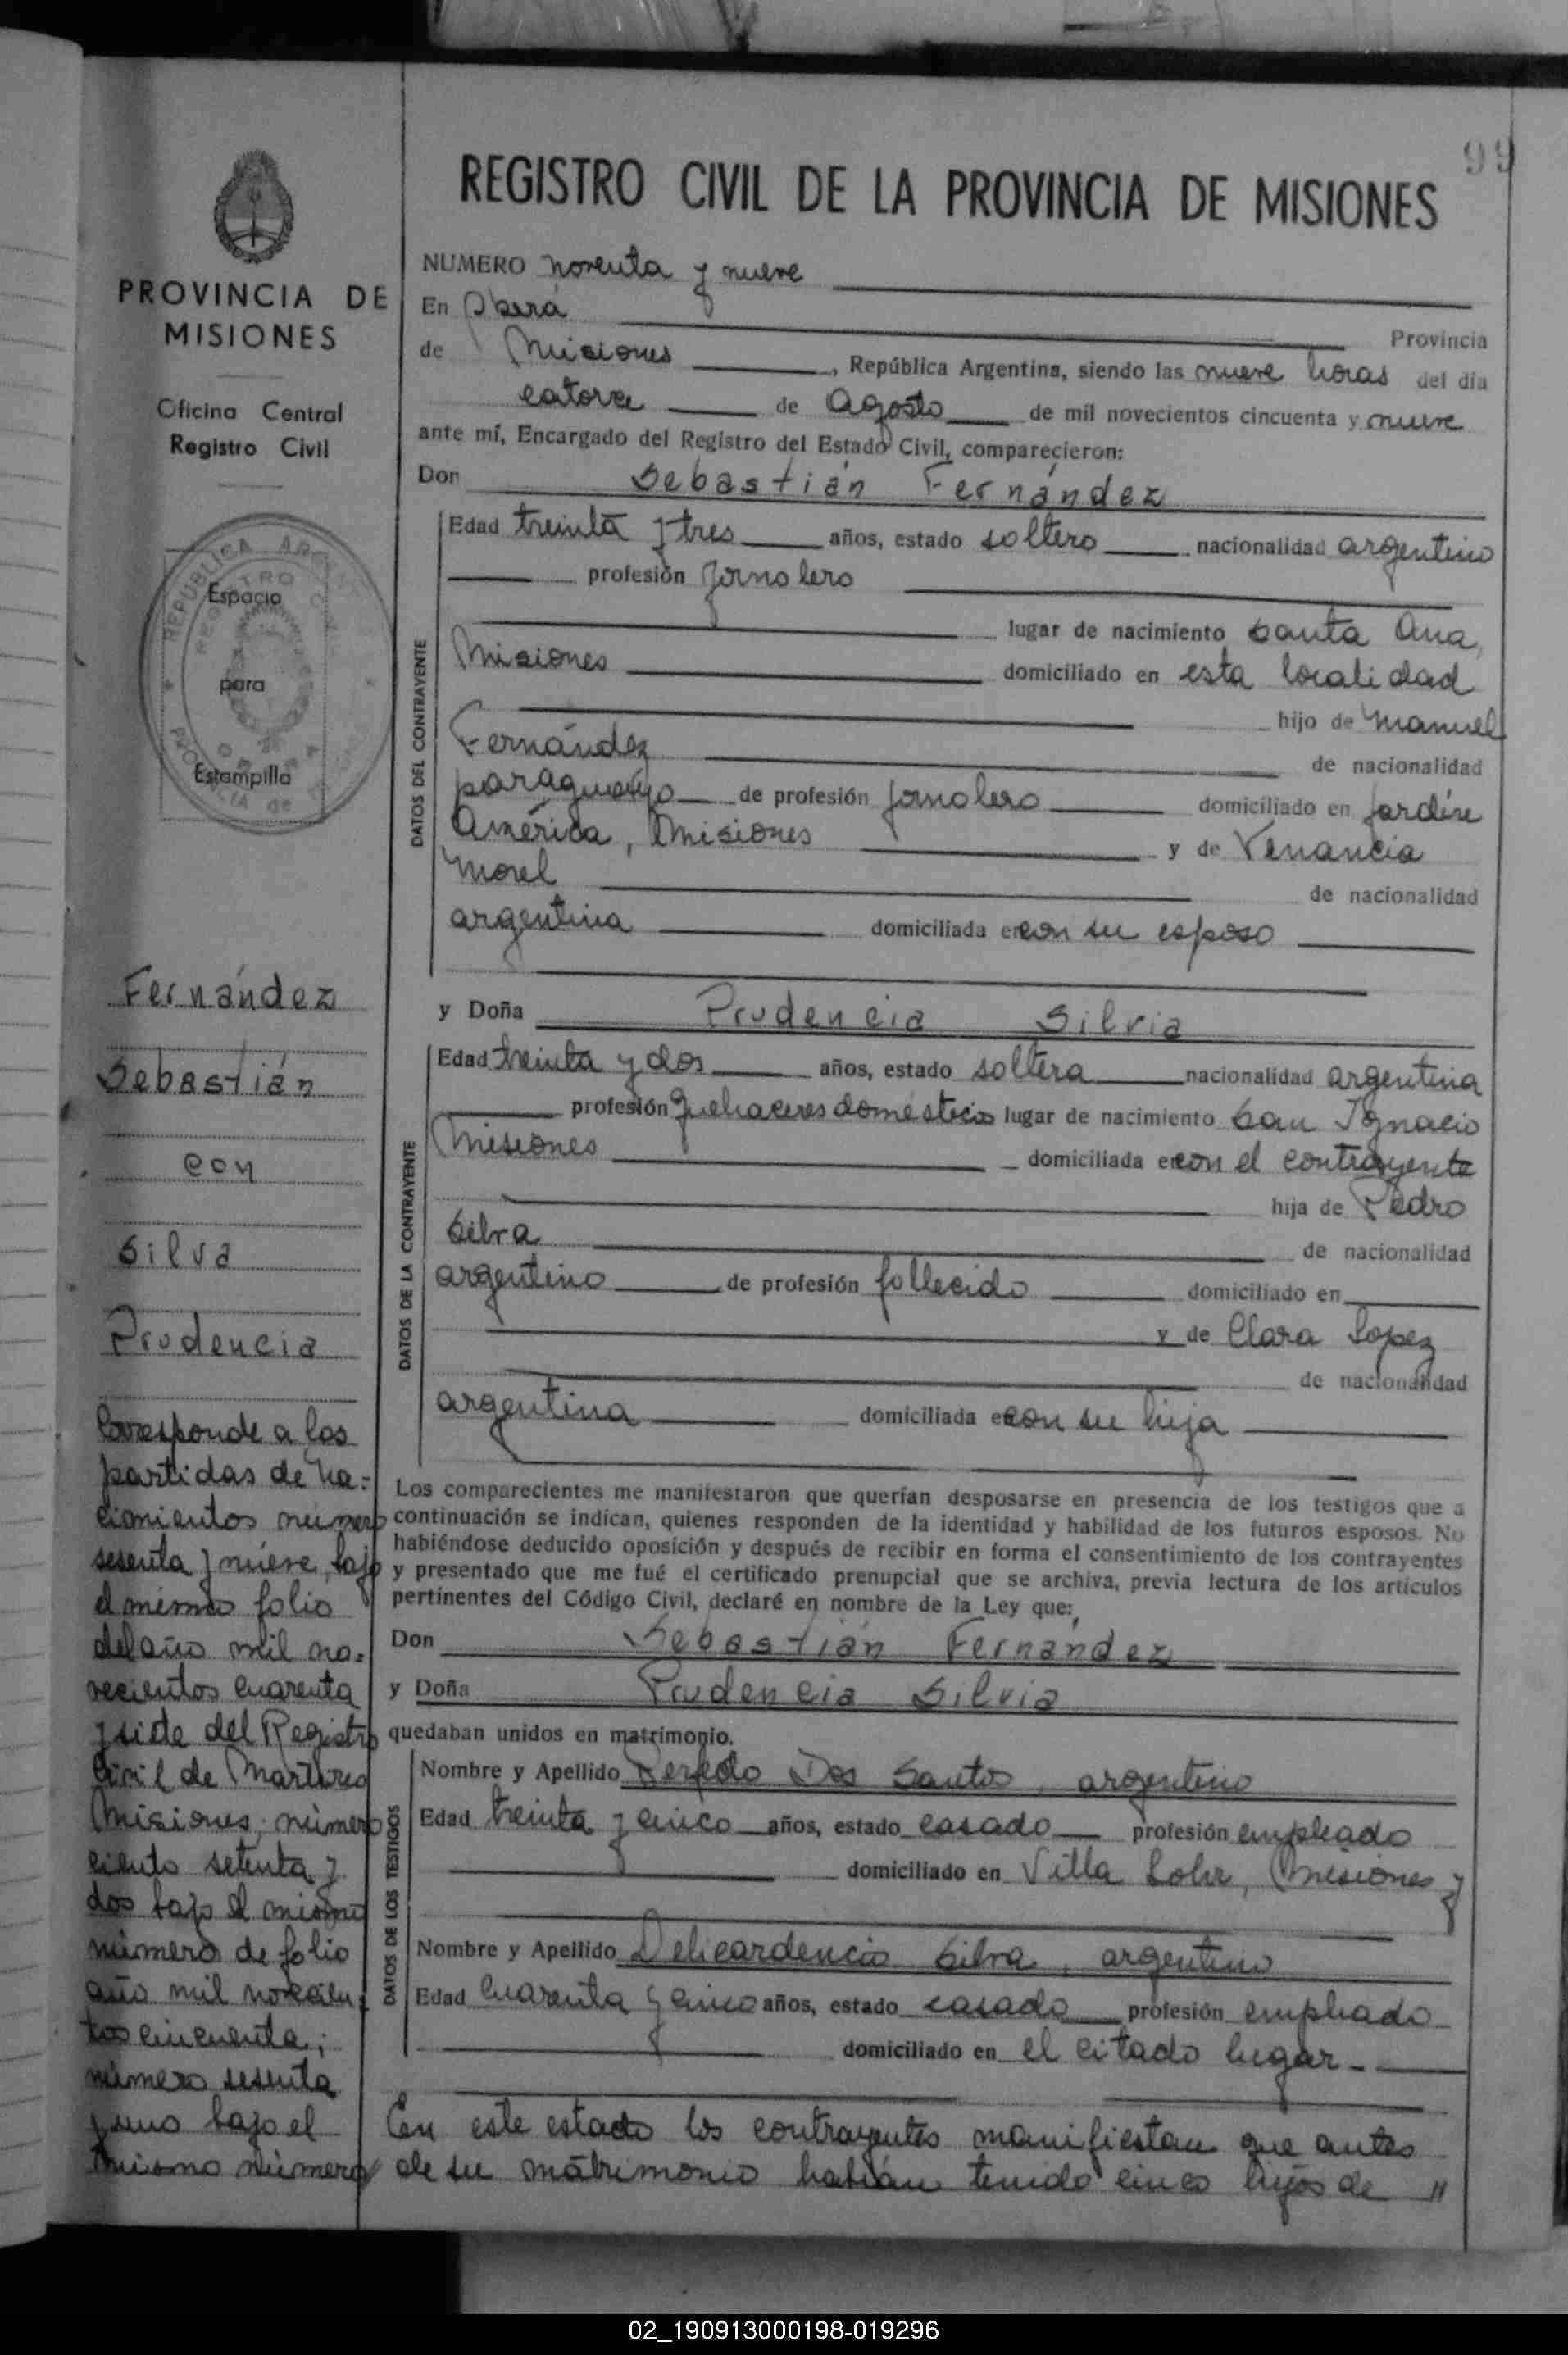 99
REGISTRO CIVIL DE LA PROVINCIA DE MISIONES
PROVINCIA DE
MISIONES
Oficina Central
Registro Civil
REPUBLICA
Espacio
para
Estampilla
Fernández
Sebastián
con
Silva
Prudencia
Corresponde a las
partidas de na-
cimientos número
sesenta y nueve, bajo
el mismo folio
del año mil no-
vecientos cuarenta
y siete del Registro
Civil de Martires
Misiones; número
ciento setenta y
dos bajo el mismo
número de folio
año mil novecien-
tos cincuenta;
número sesenta
y uno bajo el
mismo número
NUMERO noventa y nueve
En Oberá Provincia
de Misiones, República Argentina, siendo las nueve horas del día
catorce de Agosto de mil novecientos cincuenta y nueve
ante mí, Encargado del Registro del Estado Civil, comparecieron:
Don Sebastián Fernández
DATOS DEL CONTRAYENTE
Edad treinta y tres años, estado soltero nacionalidad argentino
profesión jornalero
lugar de nacimiento Santa Ana,
Misiones domiciliado en esta localidad
hijo de Manuel
Fernández de nacionalidad
paraguayo de profesión jornalero domiciliado en Jardín
América, Misiones y de Venancia
Morel de nacionalidad
argentina domiciliada en con su esposo
y Doña Prudencia Silvia
DATOS DE LA CONTRAYENTE
Edad treinta y dos años, estado soltera nacionalidad argentina
profesión Quehaceres domésticos lugar de nacimiento San Ignacio
Misiones domiciliada en con el contrayente
hija de Pedro
Silva de nacionalidad
argentino de profesión fallecido domiciliado en
y de Clara Lopez
de nacionalidad
argentina domiciliada en con su hija
Los comparecientes me manifestaron que querían desposarse en presencia de los testigos que a
continuación se indican, quienes responden de la identidad y habilidad de los futuros esposos. No
habiéndose deducido oposición y después de recibir en forma el consentimiento de los contrayentes
y presentado que me fué el certificado prenupcial que se archiva, previa lectura de los artículos
pertinentes del Código Civil, declaré en nombre de la Ley que:
Don Sebastián Fernández
y Doña Prudencia Silvia
quedaban unidos en matrimonio.
DATOS DE LOS TESTIGOS
Nombre y Apellido Dos Santos, argentino
Edad treinta y cinco años, estado casado profesión empleado
domiciliado en Villa Lohr, Misiones y
Nombre y Apellido Silva, argentino
Edad cuarenta y cinco años, estado casado profesión empleado
domiciliado en el citado lugar-
En este estado los contrayentes manifiestan que antes
de su matrimonio habían tenido cinco hijos de "
02_190913000198-019296